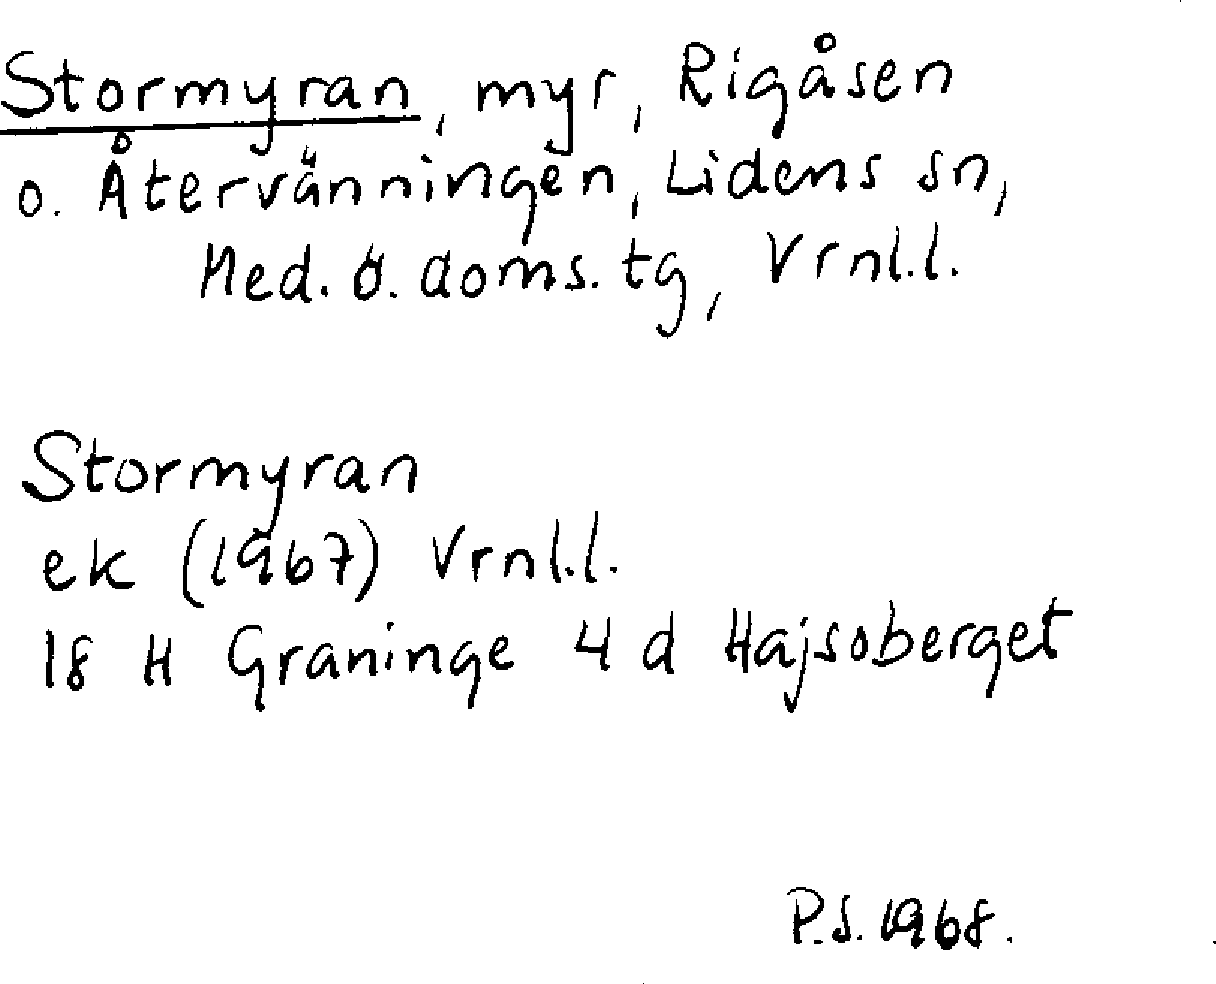 Stormyran, myr, Rigåsen
o. Återvänningen, Lidens sn,
Med. ö. doms. tg, Vrnl.l.
Stormyran
ek (1967) Vrnl.l.
18 H Graninge 4 d Hajsoberget
P.S. 1968.